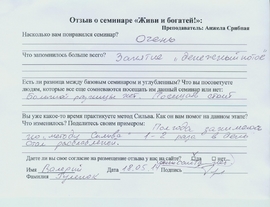 Отзыв о семинаре «Живи и богатей!»:
Преподаватель: Анжела Сриблая
Насколько вам понравился семинар?
Очень
Что запомнилось больше всего?
Занятие "денежный поток"
Есть ли разница между базовым семинаром и углубленным? Что вы посоветуете
людям, которые все еще сомневаются посещать им данный семинар или нет:
Большой разницы нет. Посещать стоит
Вы уже какое-то время практикуете метод Сильва. Как он вам помог на данном этапе?
Что изменилось? Поделитесь своим примером:
Полгода занимаюсь
по методу Сильва 1-2 раза в день
Стал
Даете ли вы свое согласие на размещение отзыва у нас на сайте? Да нет
Имя Валерий Дата 18.05 Подпись
Фамилия